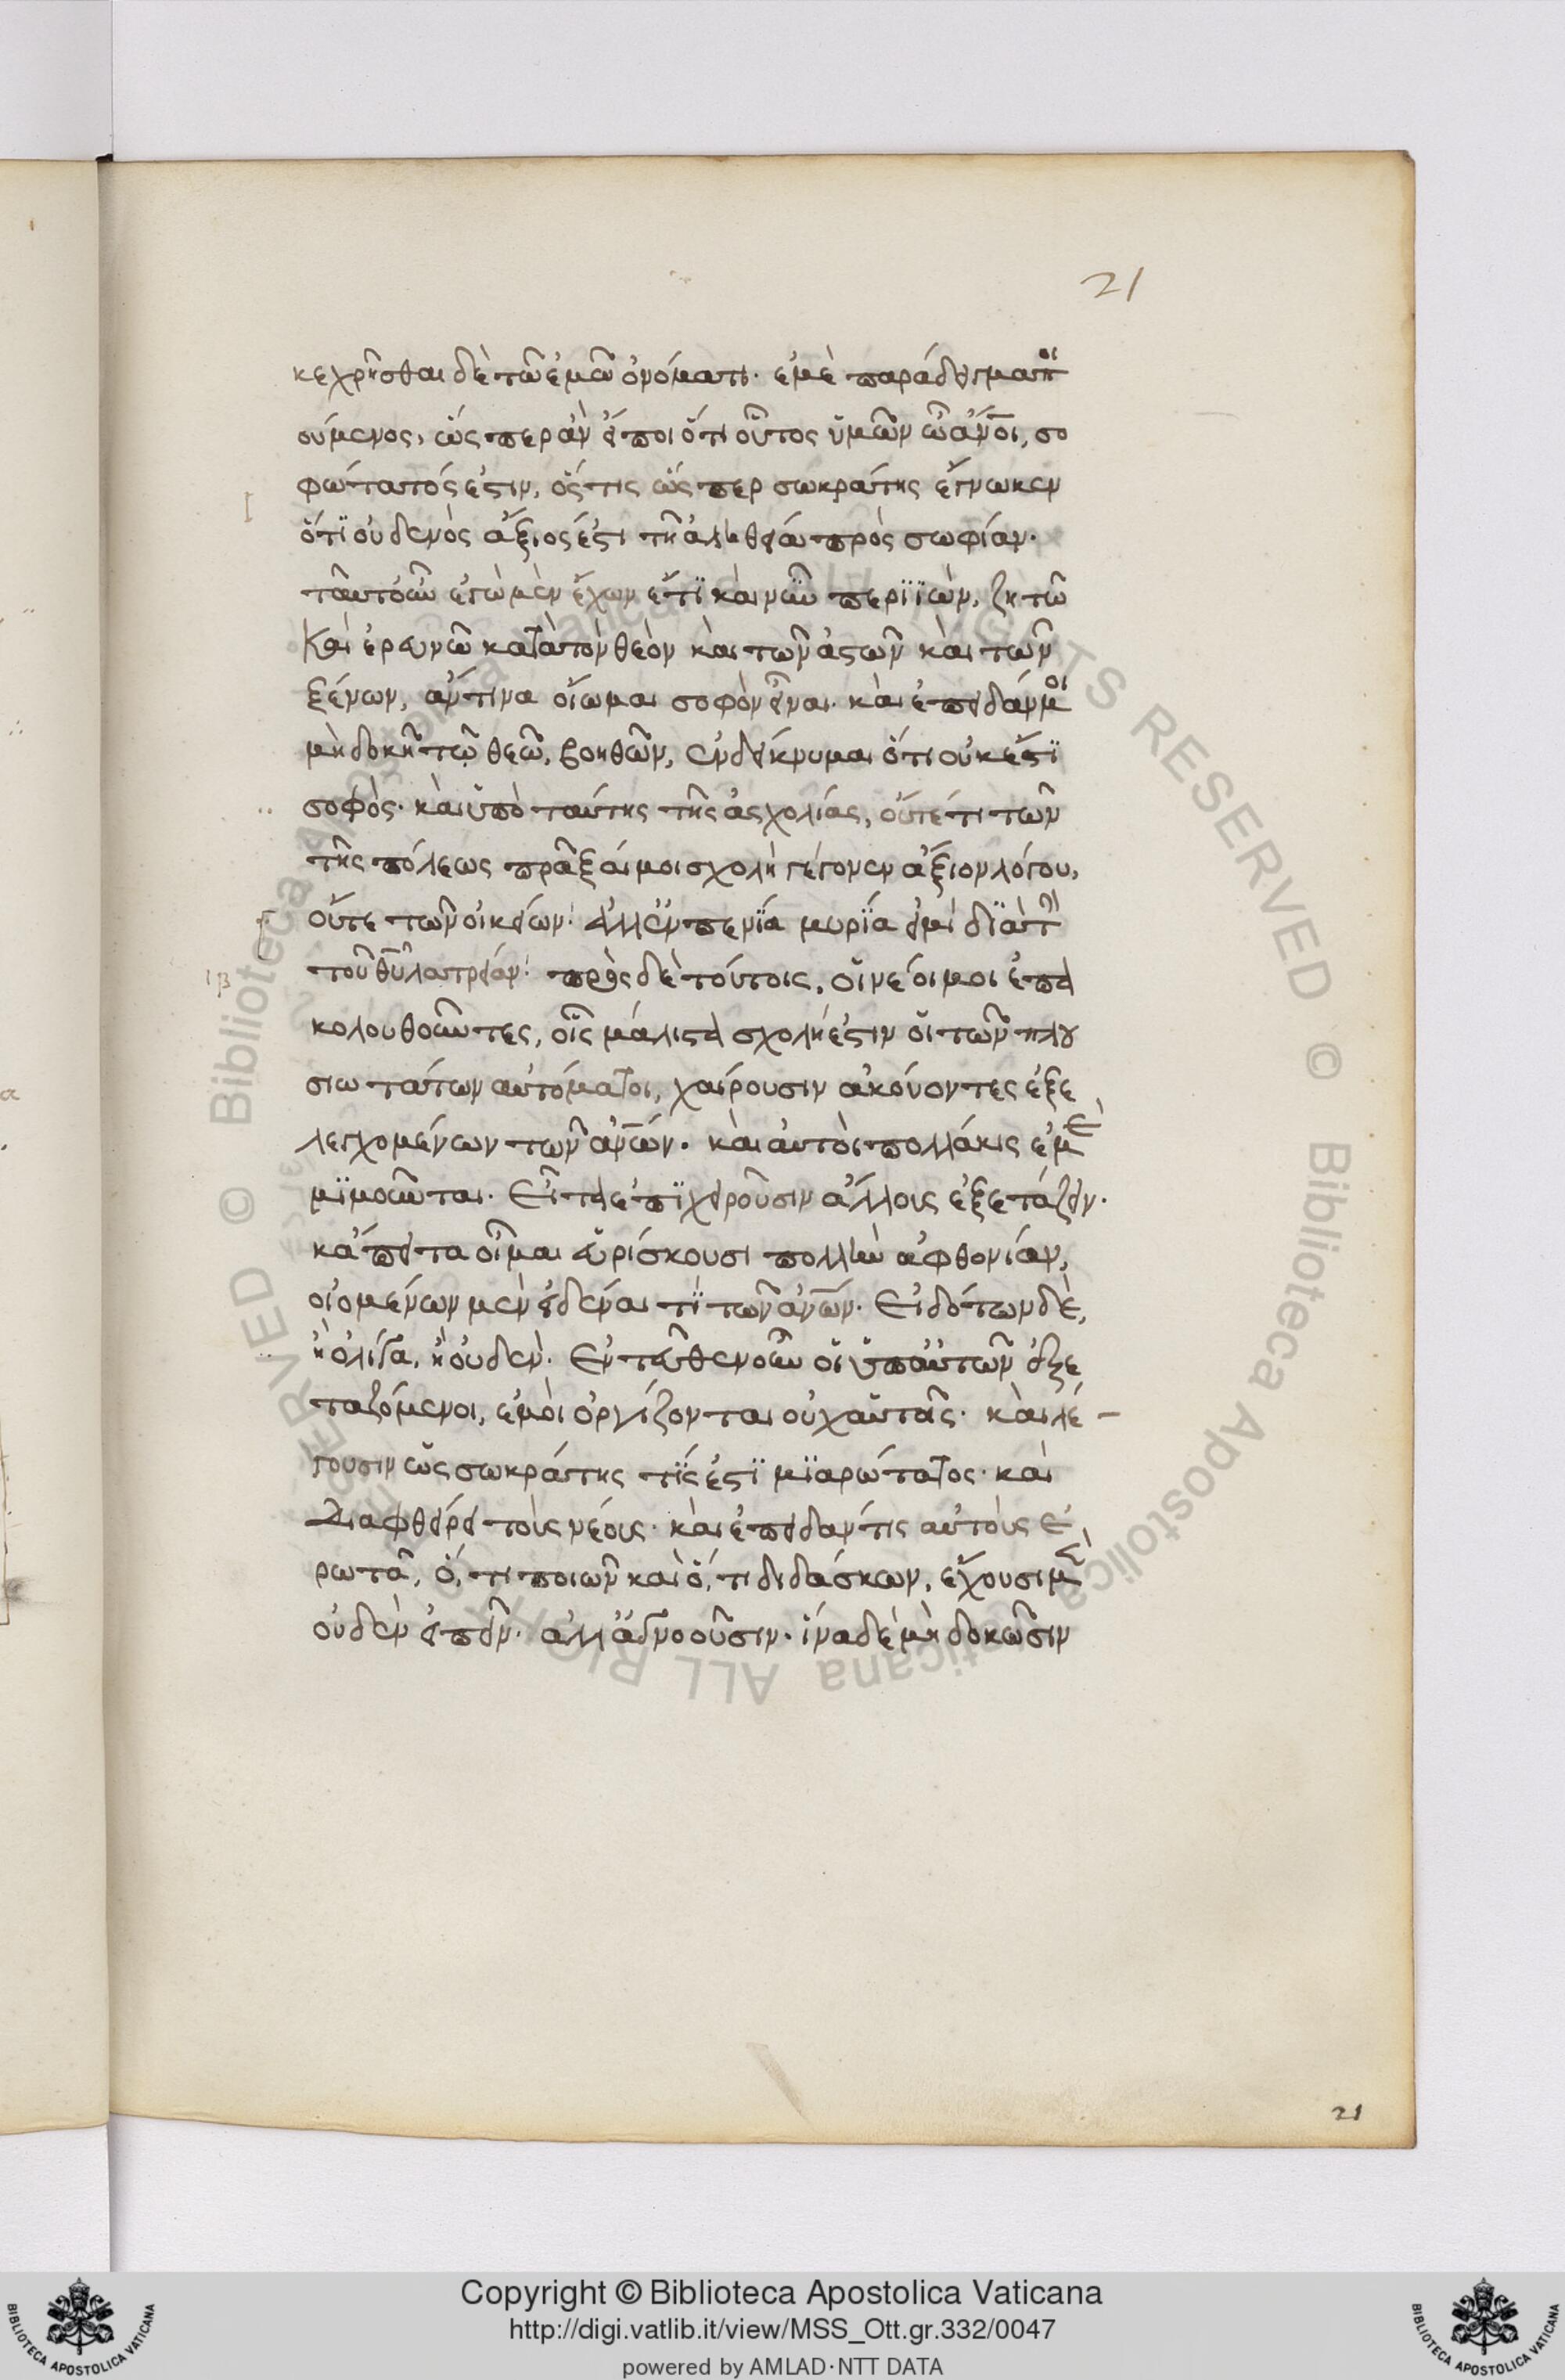 21
κεχρῆσθαι δὲ τῶ ἐμῶ ὀνόματι· ἐμὲ παράδειγμα ποι
ούμενος, ὥσπερ ἂν εἴποι ὅτι οὗτος ὑμῶν ὦ ἄνοι, σο
φώτατός ἐστιν, ὅστις ὥσπερ σωκράτης ἔγνωκεν
ὅτι οὐδενὸς ἄξιός ἐστι τῆ ἀληθεία πρὸς σωφίαν·
ταῦτ' οὖν ἐγὼ μὲν ἔχων ἔτϊ καὶ νῦν περιϊὼν, ζητῶ
Καὶ ἐρευνῶ κατὰ τὸν θεὸν καὶ τῶν ἀστῶν καὶ τῶν
ξένων, ἄν τινα οἴωμαι σοφὸν εἶναι· καὶ ἐπειδάν μοι
μὴ δοκῆ τῶ θεῶ, βοηθῶν, ἐνδείκνυμαι ὅτι οὐκ ἔστϊ
σοφὸς· καὶ ὑπὸ ταύτης τῆς ἀσχολίας, οὔτέ τι τῶν
τῆς πόλεως πρᾶξαί μοι σχολὴ γέγονεν ἄξιον λόγου,
οὔτε τῶν οἰκείων· ἀλλ' ἐν πενΐα μυρΐα εἰμὶ δϊὰ τὴν
τοῦ θυ λατρείαν· πρὸς δὲ τούτοις, οἱ νέοι μοι ἐπα
κολουθοῦντες, οἷς μάλιστα σχολή ἐστιν οἱ τῶν πλου
σιωτάτων αὐτόματοι, χαίρουσιν ἀκούοντες ἐξε
λεγχομένων τῶν ἀνῶν· καὶ αὐτοὶ πολλάκις ἐμὲ
μϊμοῦνται· Εἶτα ἐπϊχειροῦσιν ἄλλους ἐξετάζειν·
κἄπειτα οἶμαι εὑρίσκουσι πολλὴν ἀφθονίαν,
οἰομένων μὲν εἰδέναι τϊ τῶν ἀνῶν· Εἰδότων δὲ,
ἢ ὀλίγα, ἢ οὐδὲν· Ἐντεῦθεν οὖν οἱ ὑπ' αὐτῶν ἐξε
ταζόμενοι, ἐμοὶ ὀργίζονται οὐχ αὑτοῖς· καὶ λέ-
γουσιν ὡς σωκράτης τΐς ἐστϊ μϊαρώτατος· καὶ
Διαφθείρει τοὺς νέους· καὶ ἐπειδάν τις αὐτοὺς ἐ
ρωτᾶ, ὅ, τι ποιῶν καὶ ὅ, τι διδάσκων, ἔχουσι μὲν
οὐδὲν εἰπεῖν· ἀλλ' ἀγνοοῦσιν· ἵνα δὲ μὴ δοκῶσιν
ιβ
21
Copyright © Biblioteca Apostolica Vaticana
http://digi.vatlib.it/view/MSS_Ott.gr.332/0047
powered by AMLAD·NTT DATA